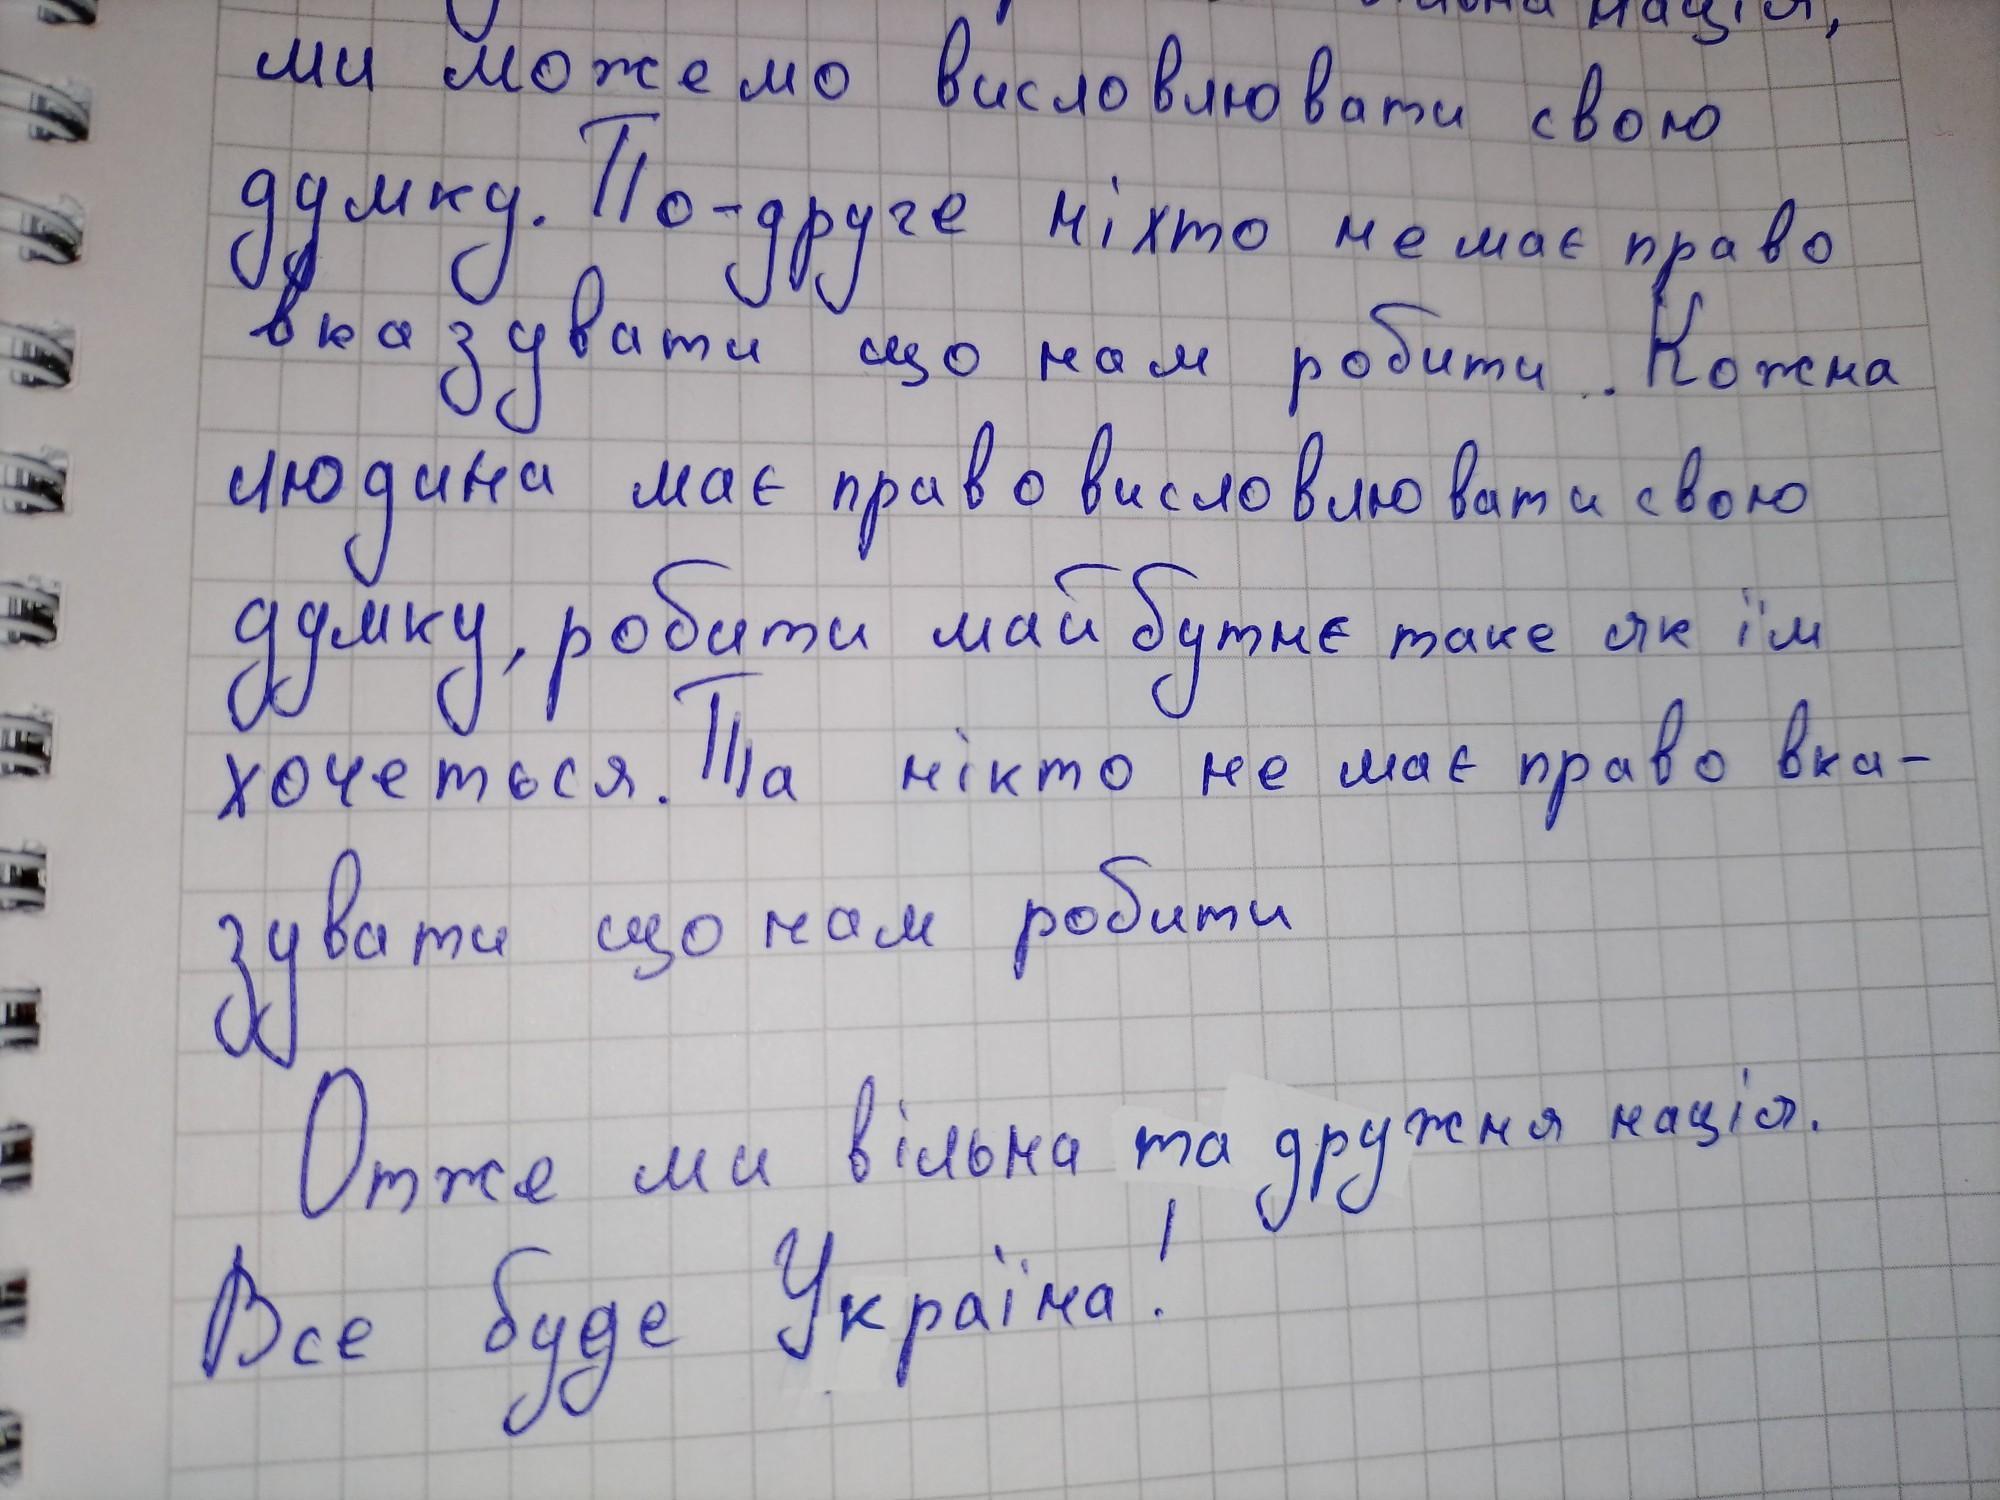 нація,
ми можемо висловлювати свою
думку. По-друге ніхто не має право
вказувати що нам робити. Кожна
людина має право висловлювати свою
думку, робити майбутнє таке як їм
хочеться. Та нікто не має право вка-
зувати що нам робити
Отже ми вільна та дружня нація.
Все буде Україна!